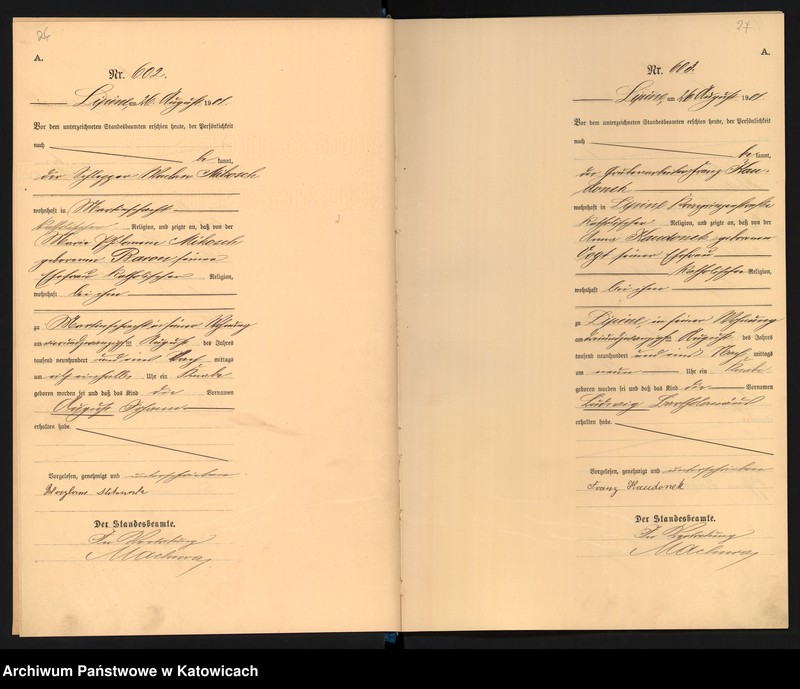 26
A.
Nr. 602.
Lipine, am 26. August 1901.
Vor dem unterzeichneten Standesbeamten erschien heute, der Persönlichkeit
nach
be kannt,
der Schlepper Mikosch
wohnhaft in Martinschacht
katholischer Religion, und zeigte an, daß von der
Marie Philomene Mikosch
geborenen Baron seiner
Ehefrau katholischer Religion,
wohnhaft bei ihm
zu Martinschacht in seiner Wohnung
am vierundzwanzigsten August des Jahres
tausend neunhundert und eins Nach mittags
um Uhr ein Knabe
geboren worden sei und daß das Kind die Vornamen
August Johann
erhalten habe.
Vorgelesen, genehmigt und unterschrieben
Der Standesbeamte.
In Vertretung
Machura
27
A.
Nr. 603.
Lipine, am 26. August 1901.
Vor dem unterzeichneten Standesbeamten erschien heute, der Persönlichkeit
nach
be kannt,
der Grubenarbeiter Franz Kau-
donek
wohnhaft in Lipine
katholischer Religion, und zeigte an, daß von der
Anna Kaudonek geborenen
Vogt seiner Ehefrau
katholischer Religion,
wohnhaft bei ihm
zu Lipine, in seiner Wohnung
am dreiundzwanzigsten August des Jahres
tausend neunhundert und eins Nach mittags
um neun Uhr ein Knabe
geboren worden sei und daß das Kind die Vornamen
Ludwig Bartholomäus
erhalten habe.
Vorgelesen, genehmigt und unterschrieben
Franz Kaudonek
Der Standesbeamte.
In Vertretung
Machura
Archiwum Państwowe w Katowicach